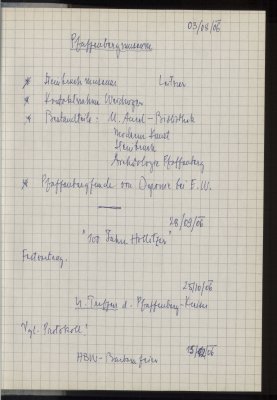 03/08/06
Pfaffenbergmuseum
* Steinbruchmuseum Leitner
* Kontaktnahme
* Bestandteile: M. Aurel-Bibliothek
moderne Kunst
Steinbruch
Archäologie Pfaffenberg
* Pfaffenbergfunde von Deponie bei E.W.
28/09/06
"100 Jahre Hollitzer"
Festvortrag.
25/10/06
4. Treffen d. Pfaffenberg-Kreises
Vgl. Protokoll!
ABW-Barbarafeier